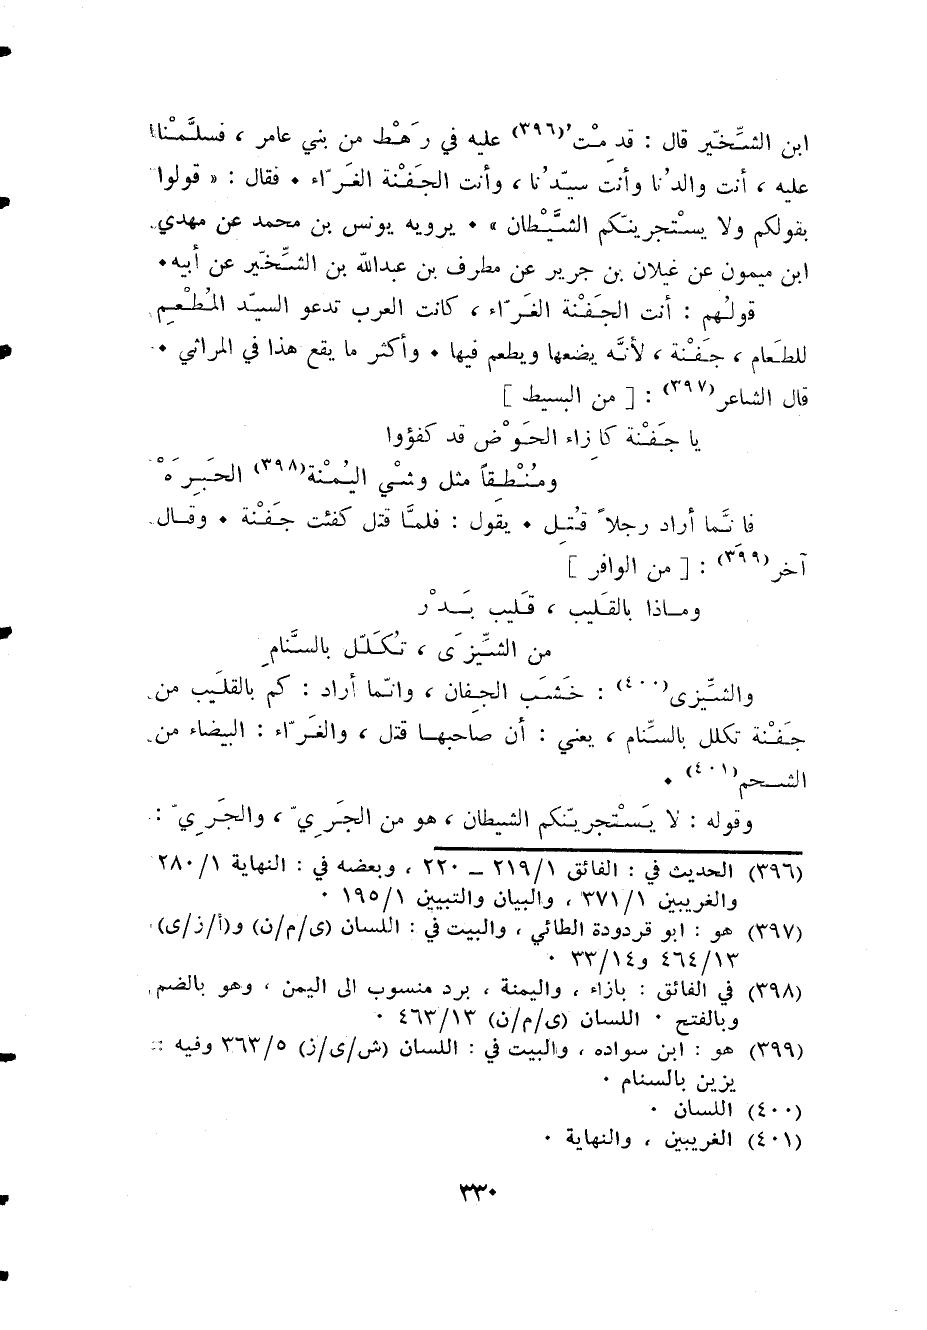 ابن الشِّخِّير قال : قدِمْت'(٣٩٦) عليه في رَهْط من بني عامر ، فسلَّمْنا
عليه ، أنت والدُنا وأنت سيّدُنا ، وأنت الجَفْنة الغَرّاء ٠ فقال : « قولوا
بقولكم ولا يسْتجرينّكم الشَّيْطان » ٠ يرويه يونس بن محمد عن مهدي
ابن ميمون عن غيلان بن جرير عن مطرف بن عبدالله بن الشِّخّير عن أبيه ٠
قولُهم : أنت الجَفْنة الغَرّاء ، كانت العرب تدعو السيّد المُطْعِم
للطَعام ، جَفْنة ، لأنَّه يضعها ويطعم فيها ٠ وأكثر ما يقع هذا في المراثي ٠
قال الشاعر(٣٩٧) : [ من البسيط ]
يا جَفْنة كازِاء الحَوْض قد كفؤوا
ومُنْطِقاً مثل وشْي اليُمْنة(٣٩٨) الحَبِرَهْ
فانَّما أراد رجلاً قُتِل ٠ يقول : فلمَّا قتل كفئت جَفْنة ٠ وقال
آخر(٣٩٩) : [ من الوافر ]
وماذا بالقَليب ، قَليب بَدْر
من الشِّيزَى ، تُكَلّل بالسَّنامِ
والشِّيزى(٤٠٠) : خَشَب الجِفان ، وانّما أراد : كم بالقلَيب من
جَفْنة تكلل بالسَّنام ، يعني : أن صاحبها قتل ، والغَرّاء : البيضاء من
الشحم(٤٠١) ٠
وقوله : لا يَسْتجرينّكم الشيطان ، هو من الجَرِيّ ، والجَرِيّ :
(٣٩٦) الحديث في : الفائق ٢١٩/١ ــ ٢٢٠ ، وبعضه في : النهاية ٢٨٠/١
والغريبين ٣٧١/١ ، والبيان والتبيين ١٩٥/١ ٠
(٣٩٧) هو : ابو قردودة الطائي ، والبيت في : اللسان (ى/م/ن) و(أ/ز/ى)
٤٦٤/١٣ و٣٣/١٤ ٠
(٣٩٨) في الفائق : بازاء ، واليمنة ، برد منسوب الى اليمن ، وهو بالضم
وبالفتح ٠ اللسان (ى/م/ن) ٤٦٣/١٣ ٠
(٣٩٩) هو : ابن سواده ، والبيت في : اللسان (ش/ى/ز) ٣٦٣/٥ وفيه :
يزين بالسنام ٠
(٤٠٠) اللسان ٠
(٤٠١) الغريبين ، والنهاية ٠
٣٣٠